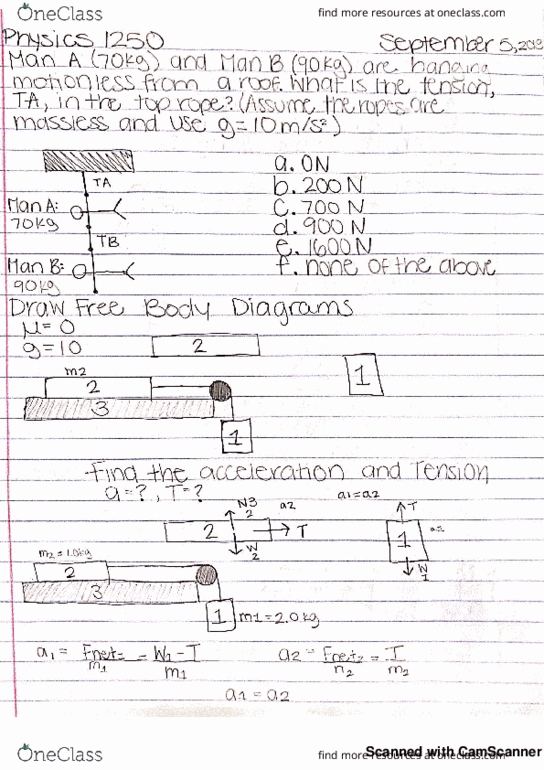 OneClass
find more resources at oneclass.com
Physics 1250
September 5, 
Man A (70kg) and Man B (90kg) are hanging
motionless from a roof. What is the tension,
TA, in the top rope? (Assume the ropes are
massless and use g=10m/s²)
TA
Man A:
70kg
TB
Man B:
90kg
a. 0N
b. 200 N
c. 700 N
d. 900 N
e. 1600 N
f. none of the above
Draw Free Body Diagrams
μ= 0
g=10
2
1
m2
2
3
1
Find the acceleration and Tension
a=?, T=?
a1=a2
N3
2
a2
2
T
W
2
T
1
W
1
m2 = 1.0kg
2
3
1
m1=2.0 kg
a1 = Fnet1 = W1 - T
m1 m1
a2 = Fnet2 = T
m2
a1 = a2
OneClass
find more resources at oneclass.com
Scanned with CamScanner